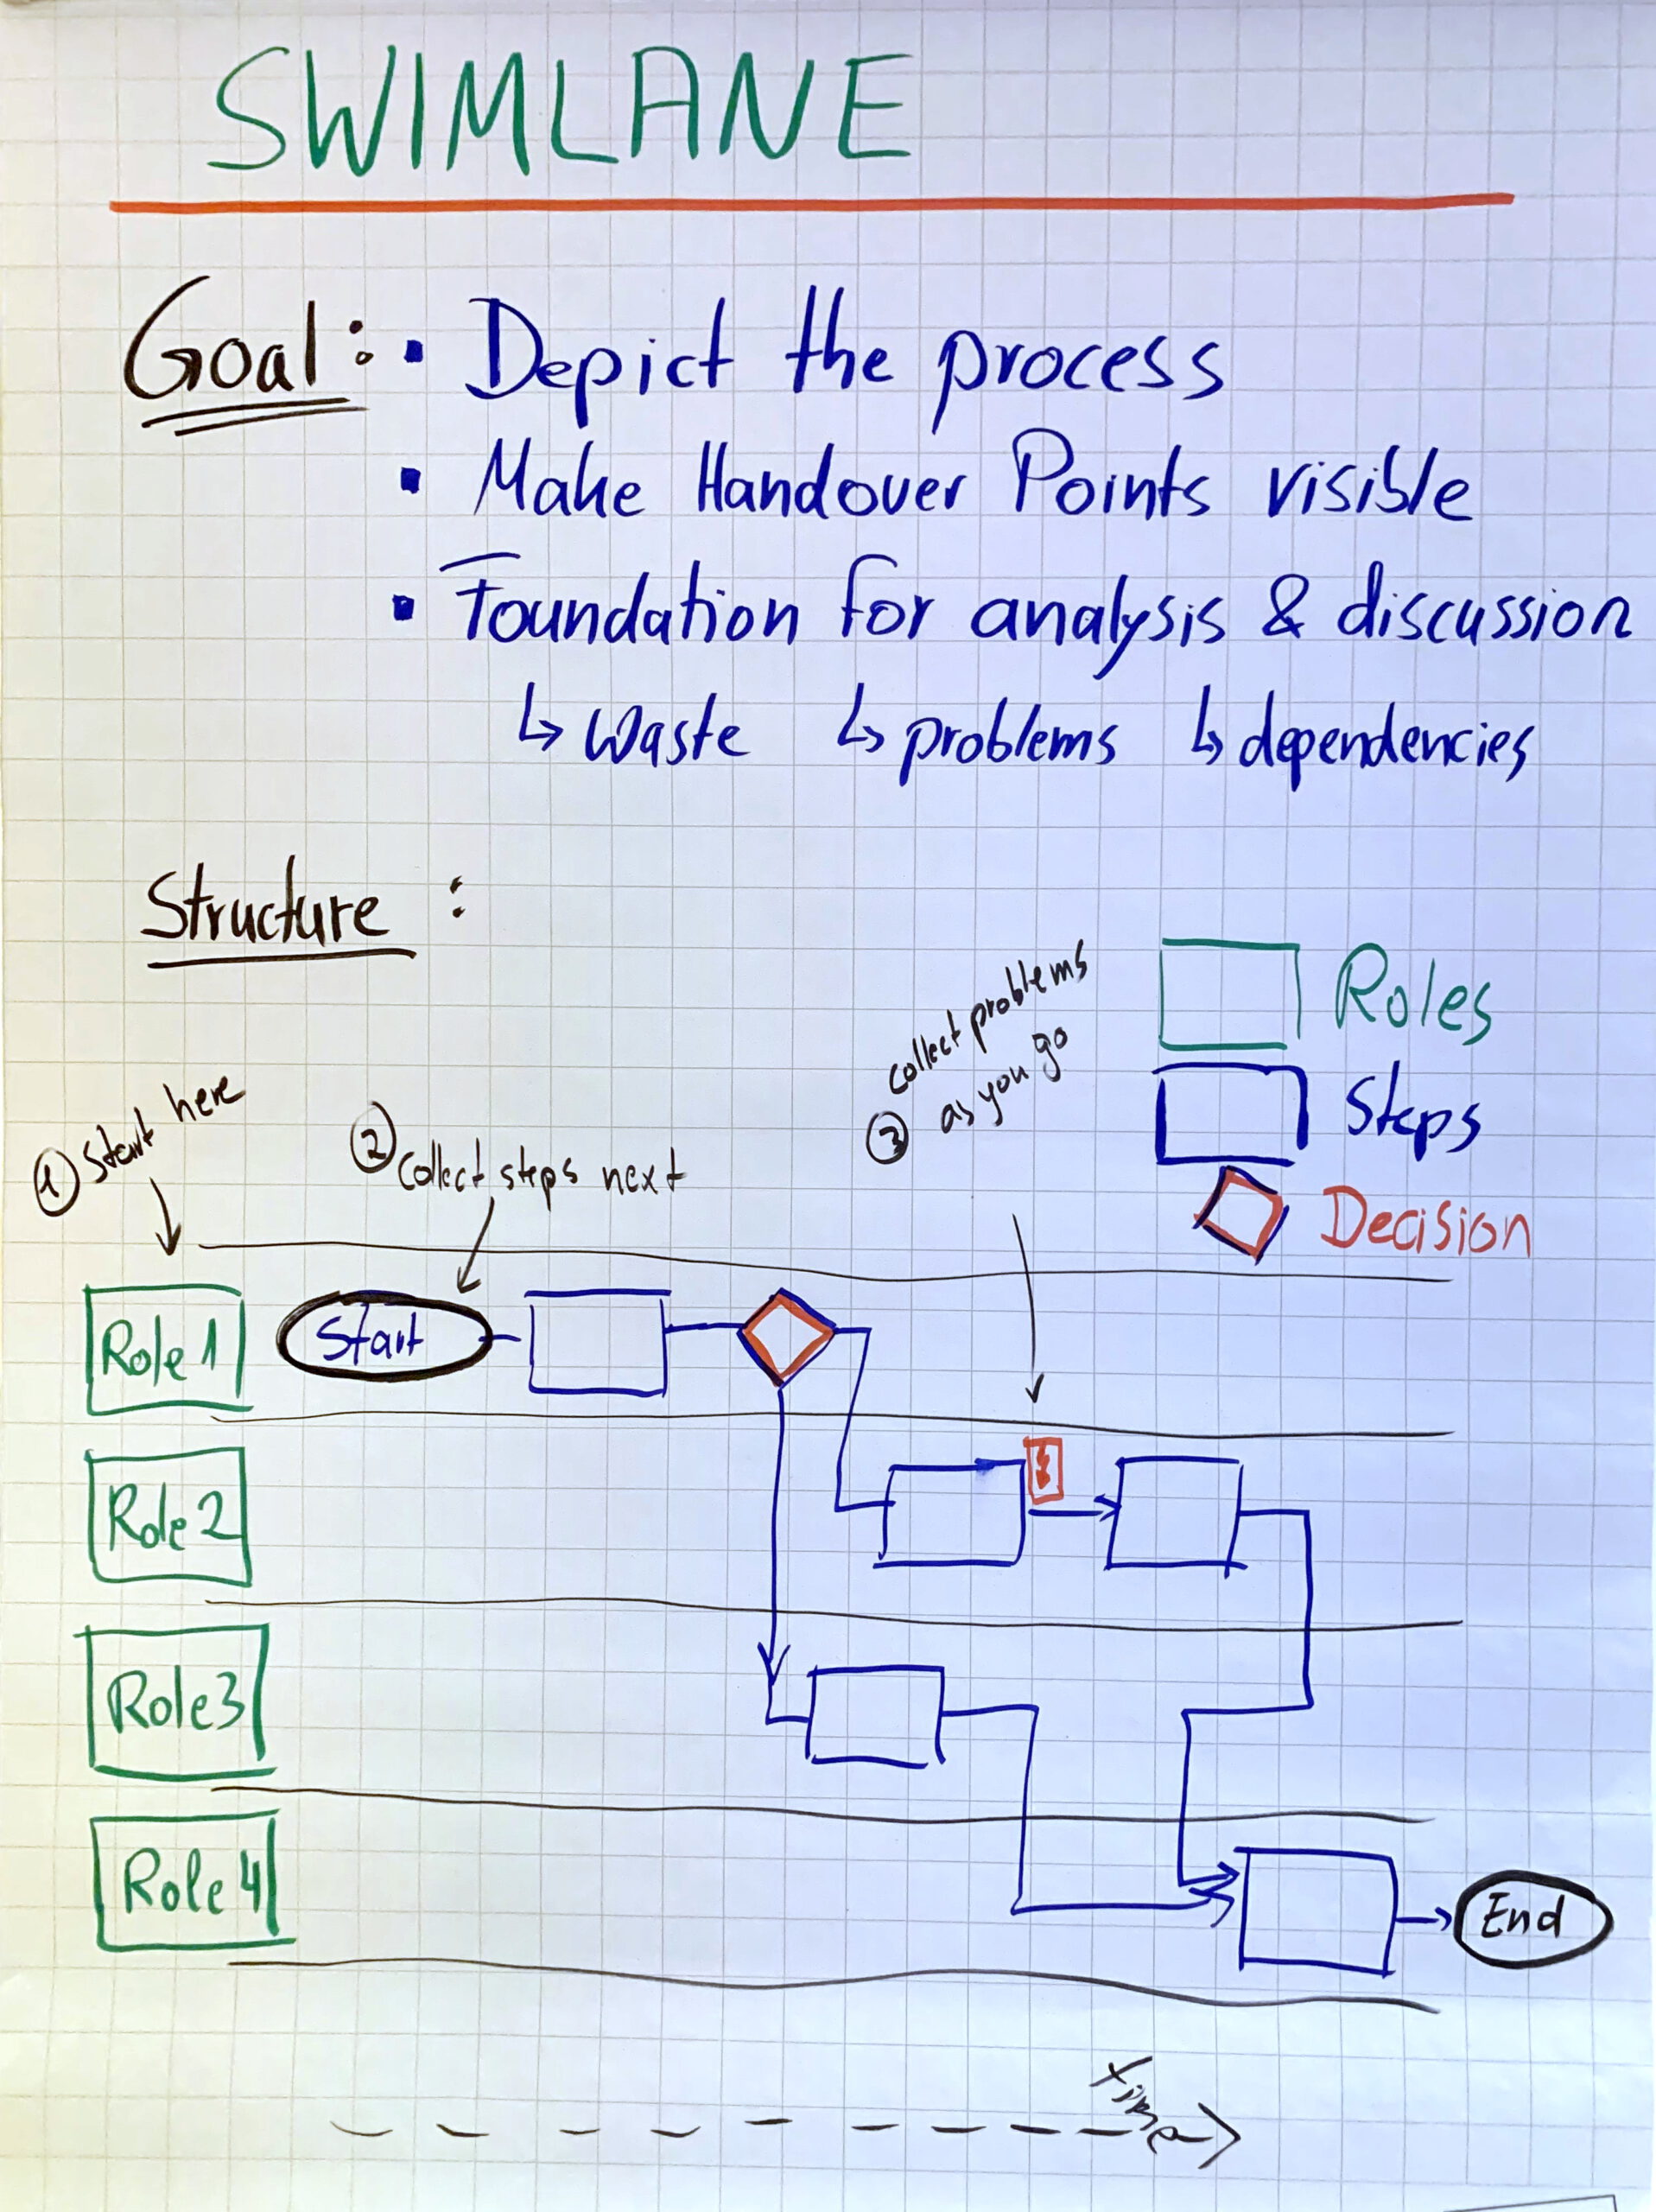 SWIMLANE
Goal: • Depict the process
• Make Handover Points visible
• Foundation for analysis & discussion
↳ Waste ↳ problems ↳ dependencies
Structure :
Roles
Steps
Decision
① Start here
② Collect steps next
③ collect problems
as you go
Role 1
Start
Role 2
Role 3
Role 4
End
time